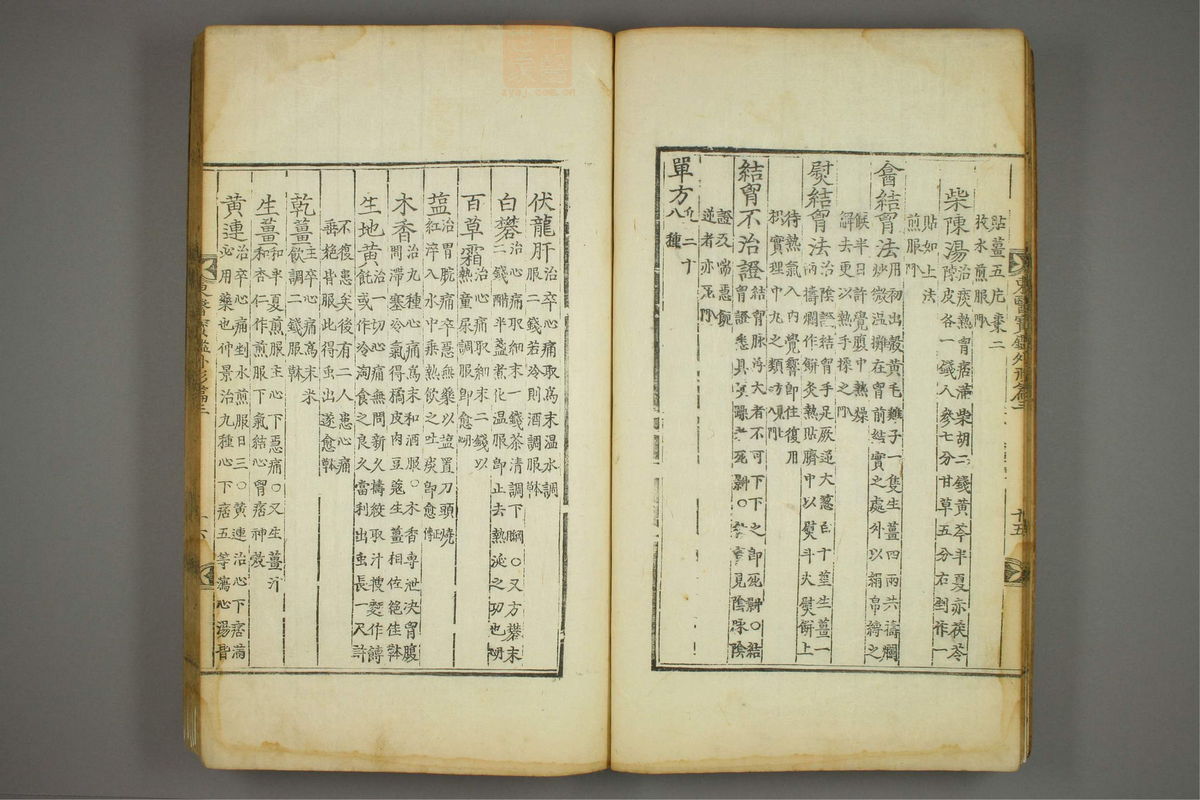 貼薑五片棗二
枚水煎服入門
柴陳湯治痰熱胷痞滿柴胡二錢黃芩半夏赤茯苓
陳皮各一錢人參七分甘草五分右剉作一
貼如上法
煎服入門
畬結胷法用初出殼黃毛雞子一隻生薑四兩共擣爛
炒微温攤在胷前結實之處外以絹帛縛之
候半日許覺腹中熱燥
解去更以熱手揉之入門
熨結胷法治陰證結胷手足厥逆大葱白十莖生薑一
兩擣爛作餠灸熱貼臍中以熨斗火熨餠上
待熱氣入內覺響即住復用
枳實理中丸之類入門
結胷不治證結胷脉浮大者不可下下之即死仲景○結
胷證悉具煩躁者死仲景○結胷見陰脉陰
證及喘急
逆者亦死入門
單方凡二十
八種
東醫寶鑑外形篇三
廿五
伏龍肝治卒心痛取爲末温水調
服二錢若冷則酒調服本
白礬治心痛取細末一錢茶清調下綱○又方礬末
二錢醋半盞煮化温服即止去熱涎之功也綱
百草霜治心痛取細末二錢以
熱童尿調服即愈綱
塩治胃脘痛卒惡無藥以塩置刀頭燒
紅淬入水中乘熱飲之吐痰即愈
木香治九種心痛爲末和酒服○木香專泄決胷腹
間滯塞冷氣得橘皮肉豆蔻生薑相佐絕佳本
生地黃治一切心痛無問新久擣絞取汁搜麪作餺
飥或作冷淘食之良久當利出虫長一尺許
不復患矣後有二人患心痛
垂絕皆服此得虫出遂愈本
乾薑主卒心痛爲末米
飲調二錢服本
生薑和半夏煎服主心下急痛○又生薑汁
和杏仁作煎服下氣結心胷痞神效
黃連治卒心痛剉水煎服日三○黃連治心下痞滿
必用藥也仲景治九種心下痞五等瀉心湯皆
東醫寶鑑外形篇三
zysj.com.cn